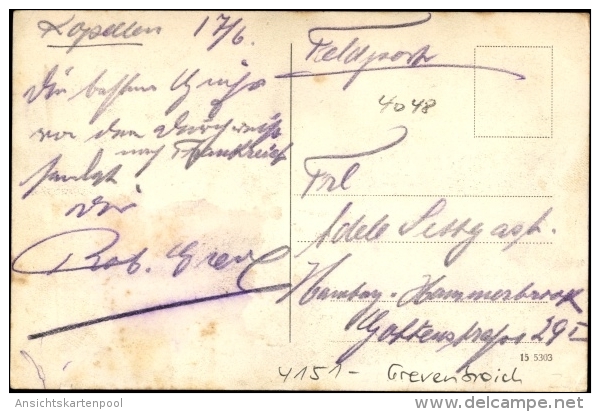 Kapellen 17/6.
Die besten Grüße
von der Durchreise
nach Frankreich
sendet
Dir
Rob.
Feldpost
4048
Frl
Adele Settgast.
Hamburg-Hammerbrook
29 I
15 5303
4151 - Grevenbroich
Ansichtskartenpool
delcampe.net